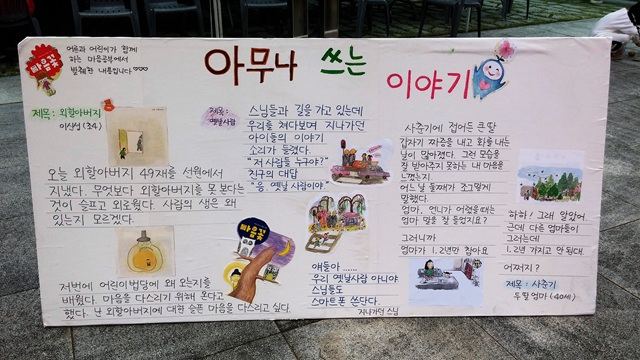 마음꽃
어른과 어린이가 함께
하는 마음공부에서
발췌한 내용입니다♡♡♡
아무나 쓰는
이야기
제목: 외할아버지
이산성 (3학)
오늘 외할아버지 49재를 선원에서
지냈다. 무엇보다 외할아버지를 못 본다는
것이 슬프고 외로웠다. 사람의 생은 왜
있는지 모르겠다.
저번에 어린이법당에 왜 오는지를
배웠다. 마음을 다스리기 위해 온다고
했다. 난 외할아버지에 대한 슬픈 마음을 다스리고 싶다.
제목:
옛날사람
스님들과 길을 가고 있는데
우리를 쳐다보며 지나가던
아이들의 이야기
소리가 들렸다.
"저 사람들 누구야?"
친구의 대답
"응. 옛날 사람이야"
마음꽃
얘들아 ......
우리 옛날사람 아니야
스님들도
스마트폰 쓴단다.
지나가던 스님
사춘기에 접어든 큰 딸
갑자기 짜증을 내고 화를 내는
날이 많아졌다. 그런 모습을
잘 받아주지 못하는 내 마음을
느꼈는지
어느 날 둘째가 조그맣게
말했다.
엄마, 언니가 어렸을 때는
엄마 말을 잘 들었지요?
그러니까
엄마가 1, 2년만 참아요
하하! 그래 알았어.
근데 다른 엄마들이
그러는데
1, 2년 가지고 안된대.
어쩌지?
제목: 사춘기
두 딸 엄마 (40세)